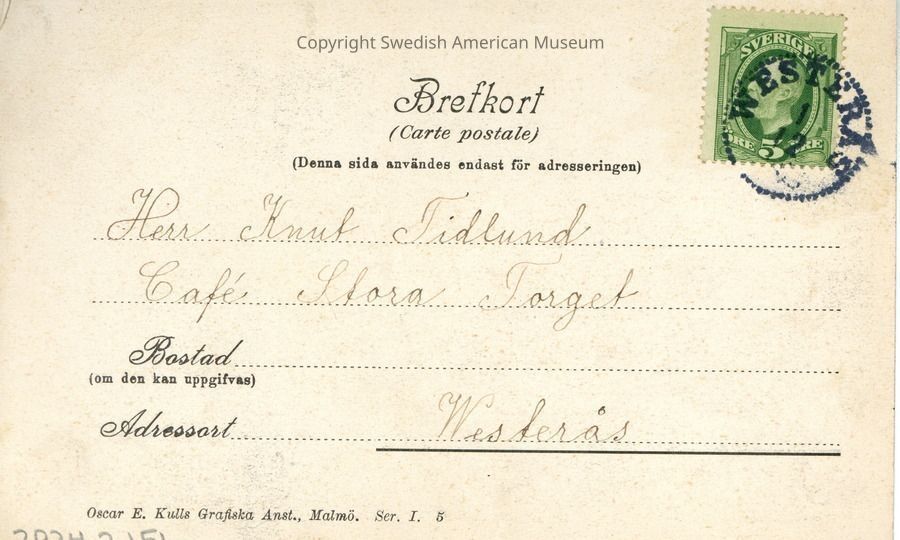 Copyright Swedish American Museum
SVERIGE
5
ÖRE ÖRE
WESTERÅS
1
12
Brefkort
(Carte postale)
(Denna sida användes endast för adresseringen)
Herr Knut Tidlund
Café Stora Torget
Bostad
(om den kan uppgifvas)
Adressort Westerås
Oscar E. Kulls Grafiska Anst., Malmö. Ser. I. 5